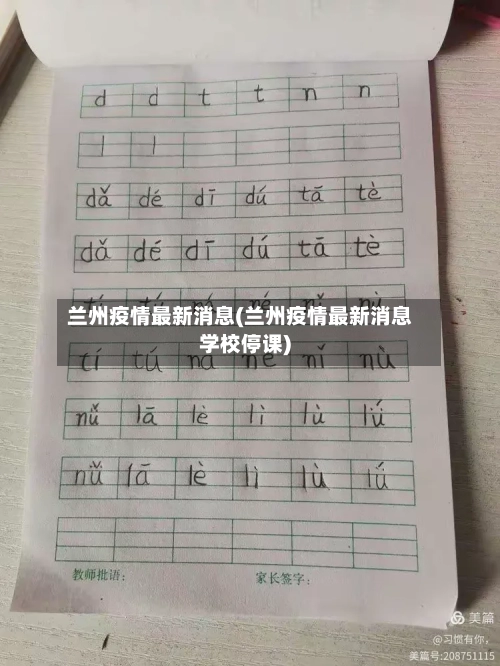 d d t t n n
l l
dǎ dé dī dú tā tè
dǎ dé dī dú tā tè
兰州疫情最新消息(兰州疫情最新消息
学校停课)
tí tú ná né nǐ nù
nǚ lā lè lì lù lǘ
nǚ lā lè lì lù lǘ
教师批语: 家长签字:
美篇
@习惯有你,
美篇号:208751115